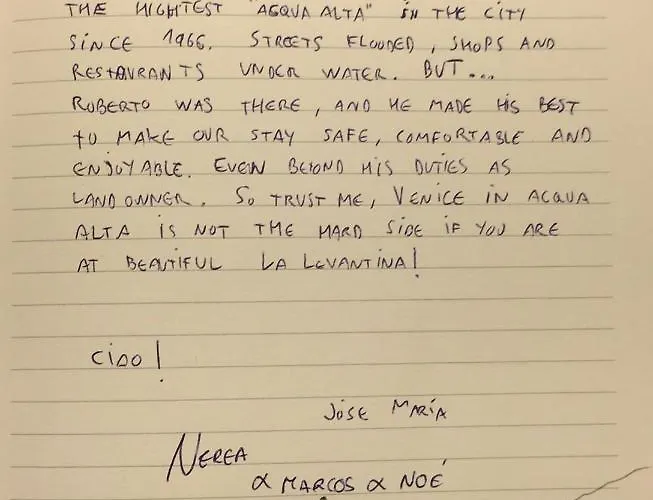 THE HIGHTEST "ACQUA ALTA" IN THE CITY
SINCE 1966. STREETS FLOODED, SHOPS AND
RESTAURANTS UNDER WATER. BUT...
ROBERTO WAS THERE, AND HE MADE HIS BEST
TO MAKE OUR STAY SAFE, COMFORTABLE AND
ENJOYABLE. EVEN BEYOND HIS DUTIES AS
LANDOWNER. SO TRUST ME, VENICE IN ACQUA
ALTA IS NOT THE HARD SIDE IF YOU ARE
AT BEAUTIFUL LA LEVANTINA!
CIAO!
JOSE MARÍA
NEREA
& MARCOS & NOÉ